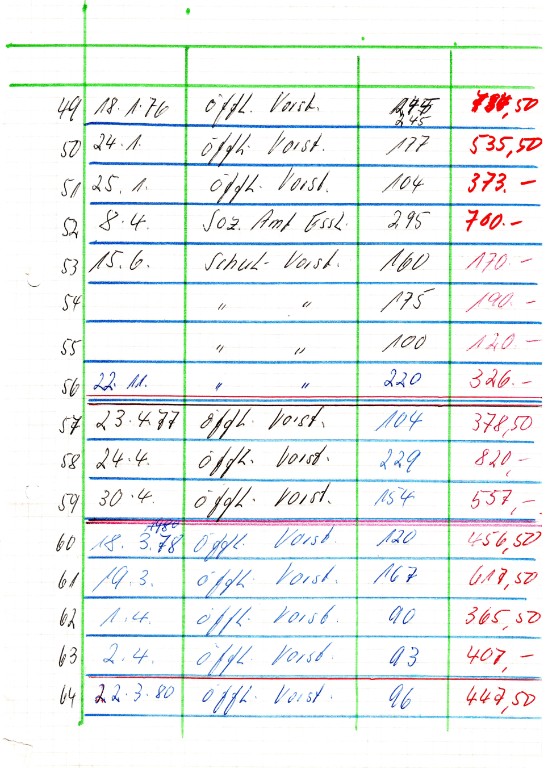 49 18.1.76 öffh. Vorst. 245 ,50
50 24.1. öffh. Vorst. 177 535,50
51 25.1. öffh. Vorst. 104 373.-
52 8.4. Soz. Amt Essl. 295 700.-
53 15.6. Schul-Vorst. 160 170.-
54 " " 175 190.-
55 " " 100 120.-
56 22.11. " " 220 326.-
57 23.4.77 öffh. Vorst. 104 378,50
58 24.4. öffh. Vorst. 229 820,-
59 30.4. öffh. Vorst. 154 557,-
1980
60 18.3.78 öffh. Vorst. 120 456,50
61 19.3. öffh. Vorst. 167 617,50
62 1.4. öffh. Vorst. 90 365,50
63 2.4. öffh. Vorst. 93 407,-
64 22.3.80 öffh. Vorst. 96 447,50